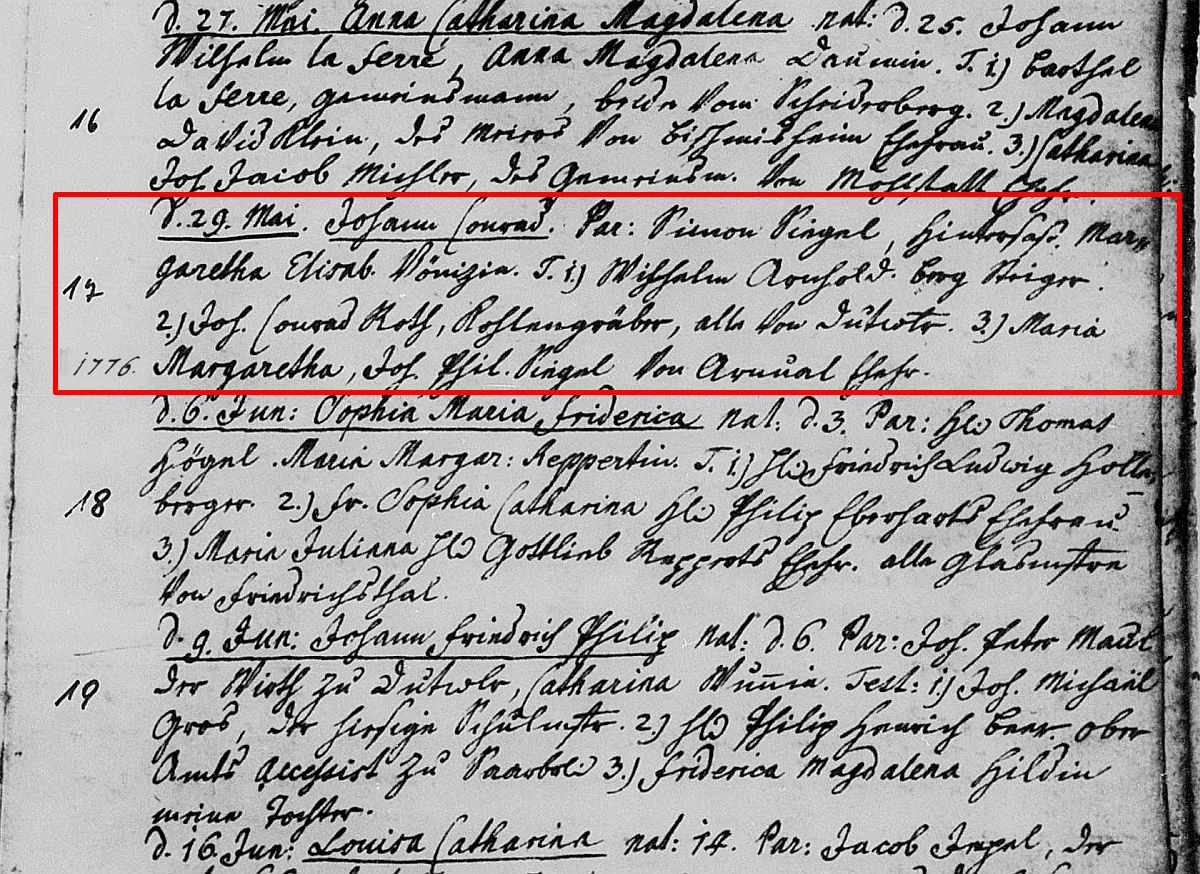 d. 27. Mai. Anna Catharina Magdalena nat: d. 25. Johann
Wilhelm la Ferré, Anna Magdalena Daumin. T. 1.) Barthel
la Ferre, Gemeinsmann, beide vom Scheiderberg. 2.) Magdalena
16
David Klein, des Meiers von Bischmisheim Ehefrau. 3.) Catharina
Joh. Jacob Michler, des Gemeinsm. von Ehefr.
d. 29. Mai. Johann Conrad. Par: Simon Siegel, Hintersaß. Mar-
garetha Elisab. T. 1.) Wilhelm Arnhold. Berg Steiger.
17
2.) Joh. Conrad Roth, Kohlengräber, alle von Dutwlr. 3.) Maria
1776. Margaretha, Joh. Phil. Siegel von Arnual Ehefr.
d. 6. Jun: Sophia Maria Friderica nat: d. 3. Par: H. Thomas
Högel. Maria Margar: Reppertin. T. 1.) H. Friedrich Ludwig
18
berger. 2.) Fr. Sophia Catharina H. Philip Eberharts Ehefrau
3.) Maria Juliana H. Gottlieb Repperts Ehefr. alle Glasmstre
von Friedrichsthal.
d. 9. Jun: Johann Friedrich Philip nat: d. 6. Par: Joh. Peter
19
der Wirth zu Dutwlr, Catharina T. Test: 1.) Joh. Michael
Gros, der hiesige Schulmstr. 2.) H. Philip Henrich Beer. Ober
Amts Accessist zu Saarbr. 3.) Friderica Magdalena Hildin
meine Tochter.
d. 16. Jun: Louisa Catharina nat: 14. Par: Jacob Impel, der